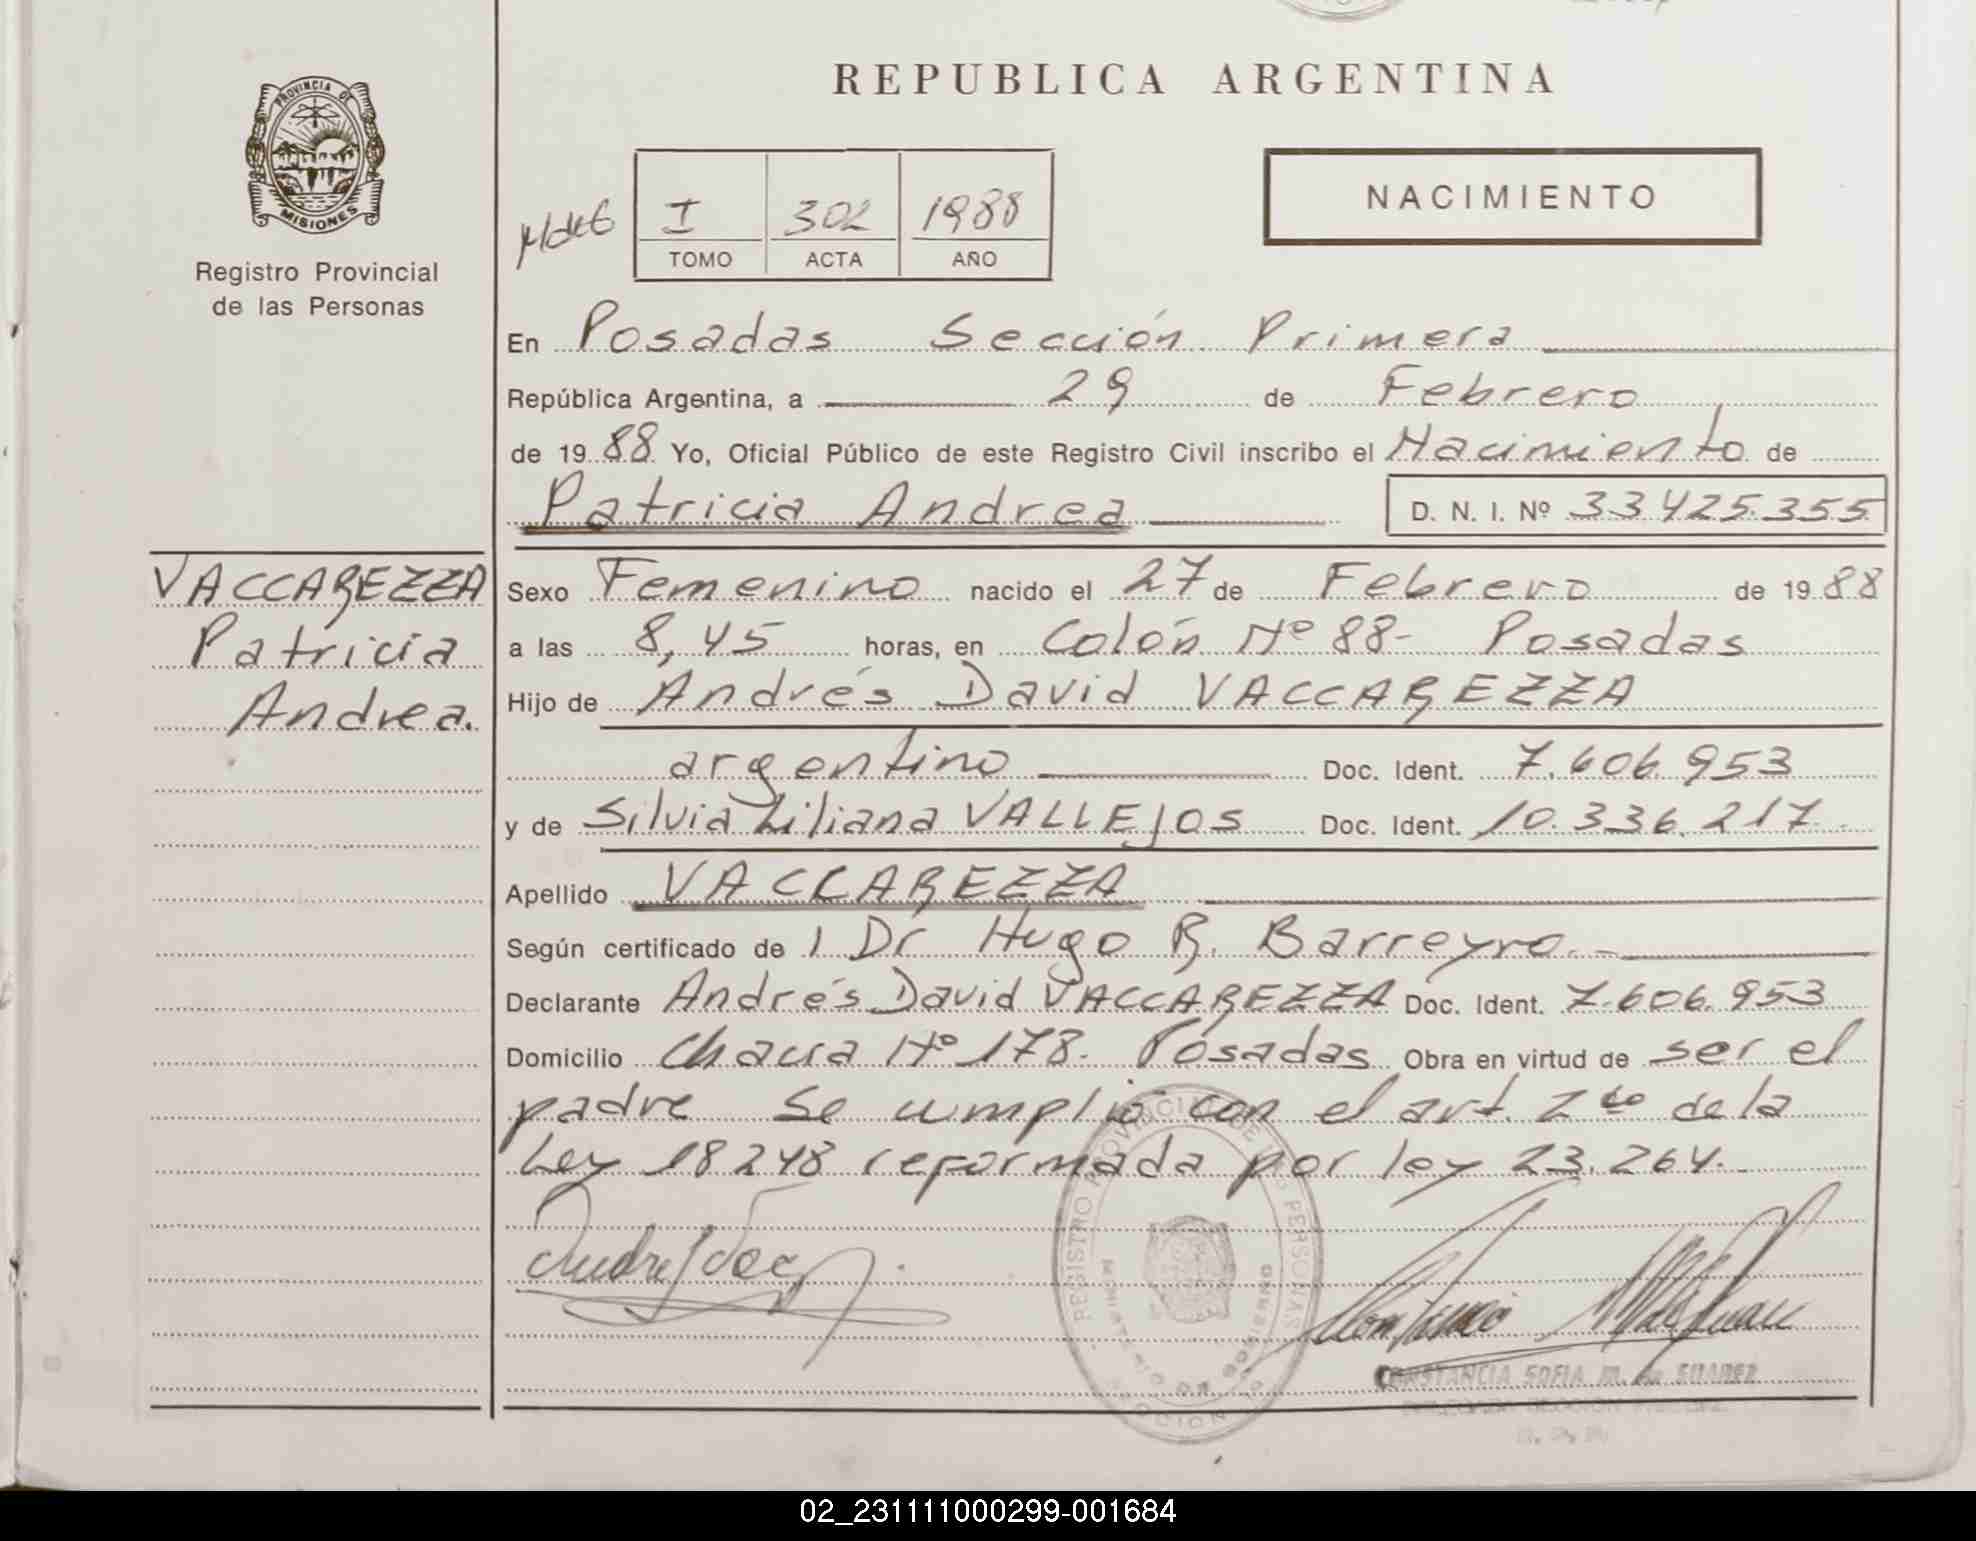 REPUBLICA ARGENTINA
PROVINCIA DE
MISIONES
Registro Provincial
de las Personas
I 302 1988
TOMO ACTA AÑO
NACIMIENTO
En Posadas Sección Primera
República Argentina, a 29 de Febrero
de 1988 Yo, Oficial Público de este Registro Civil inscribo el Nacimiento de
Patricia Andrea D. N. I. Nº 33.425.355
VACCAREZZA
Patricia
Andrea.
Sexo Femenino nacido el 27 de Febrero de 1988
a las 8,45 horas, en Colón Nº 88- Posadas
Hijo de Andrés David VACCAREZZA
argentino Doc. Ident. 7.606.953
y de Silvia Liliana VALLEJOS Doc. Ident. 10.336.217
Apellido VACCAREZZA
Según certificado de 1 Dr Hugo R. Barreyro.-
Declarante Andrés David VACCAREZZA Doc. Ident. 7.606.953
Domicilio Chacra Nº 178- Posadas Obra en virtud de ser el
padre Se cumplió con el art. 2do de la
Ley 18248 reformada por ley 23.264.
REGISTRO PROVINCIAL DE LAS PERSONAS
MINISTERIO DE GOBIERNO
CONSTANCIA SOFIA M. de SUAREZ
02_231111000299-001684